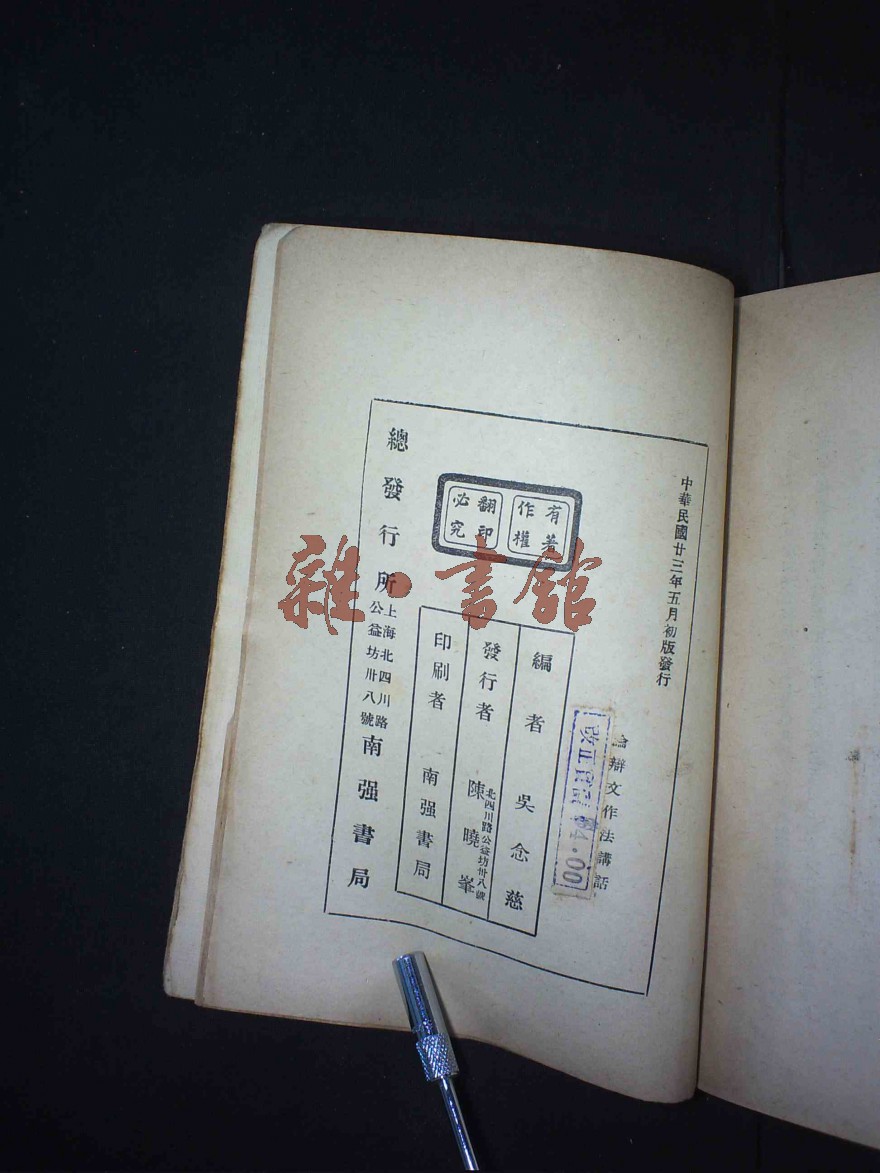 中華民國廿三年五月初版發行
論辯文作法講話
改正官價 $4.00
有著作權
翻印必究
編者 吳念慈
發行者 北四川路公益坊卅八號 陳曉峯
印刷者 南强書局
總發行所 上海北四川路公益坊卅八號 南强書局
雜·書館